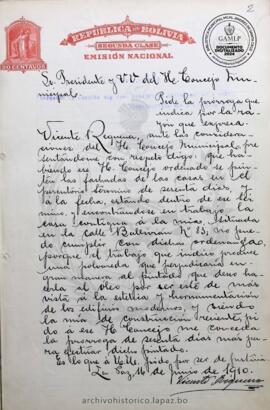 2
REPUBLICA DE BOLIVIA
SEGUNDA CLASE
EMISIÓN NACIONAL
GAMLP
DOCUMENTO
DIGITALIZADO
2024
Sr. Presidente y V.V. del H. Concejo Mu-
nicipal.
Pide la prorroga que
indica por la ra-
zón que expresa.
Vicente Requena, ante las considera-
ciones del H. Concejo Municipal, pre-
sentándome con respeto digo: que ha-
biendo ese H. Concejo ordenado se pin-
ten las fachadas de las casas en el
perentorio término de sesenta días, y á
la fecha, estando dentro de ese tér-
mino, y encontrandose en trabajo la
casa contigua á la mia, situada
en la calle Ballivian Nº 13, no pue-
do cumplir con dicha ordenanza,
porque el trabajo que indico produce
una polvareda que perjudicaria en
gran manera al pintado que debe ha-
cerse al óleo por ser este de más
vista á la estética y hornamentación
de los edificios modernos, y siendo
la mia de construcción reciente, pi-
do á ese H. Concejo me conceda
la prorroga de sesenta días más
para efectuar dicho pintado.
Es lo que á U.H. pido por ser de justicia
La Paz, 16 de junio de 1910.
Vicente Requena
archivohistorico.lapaz.bo